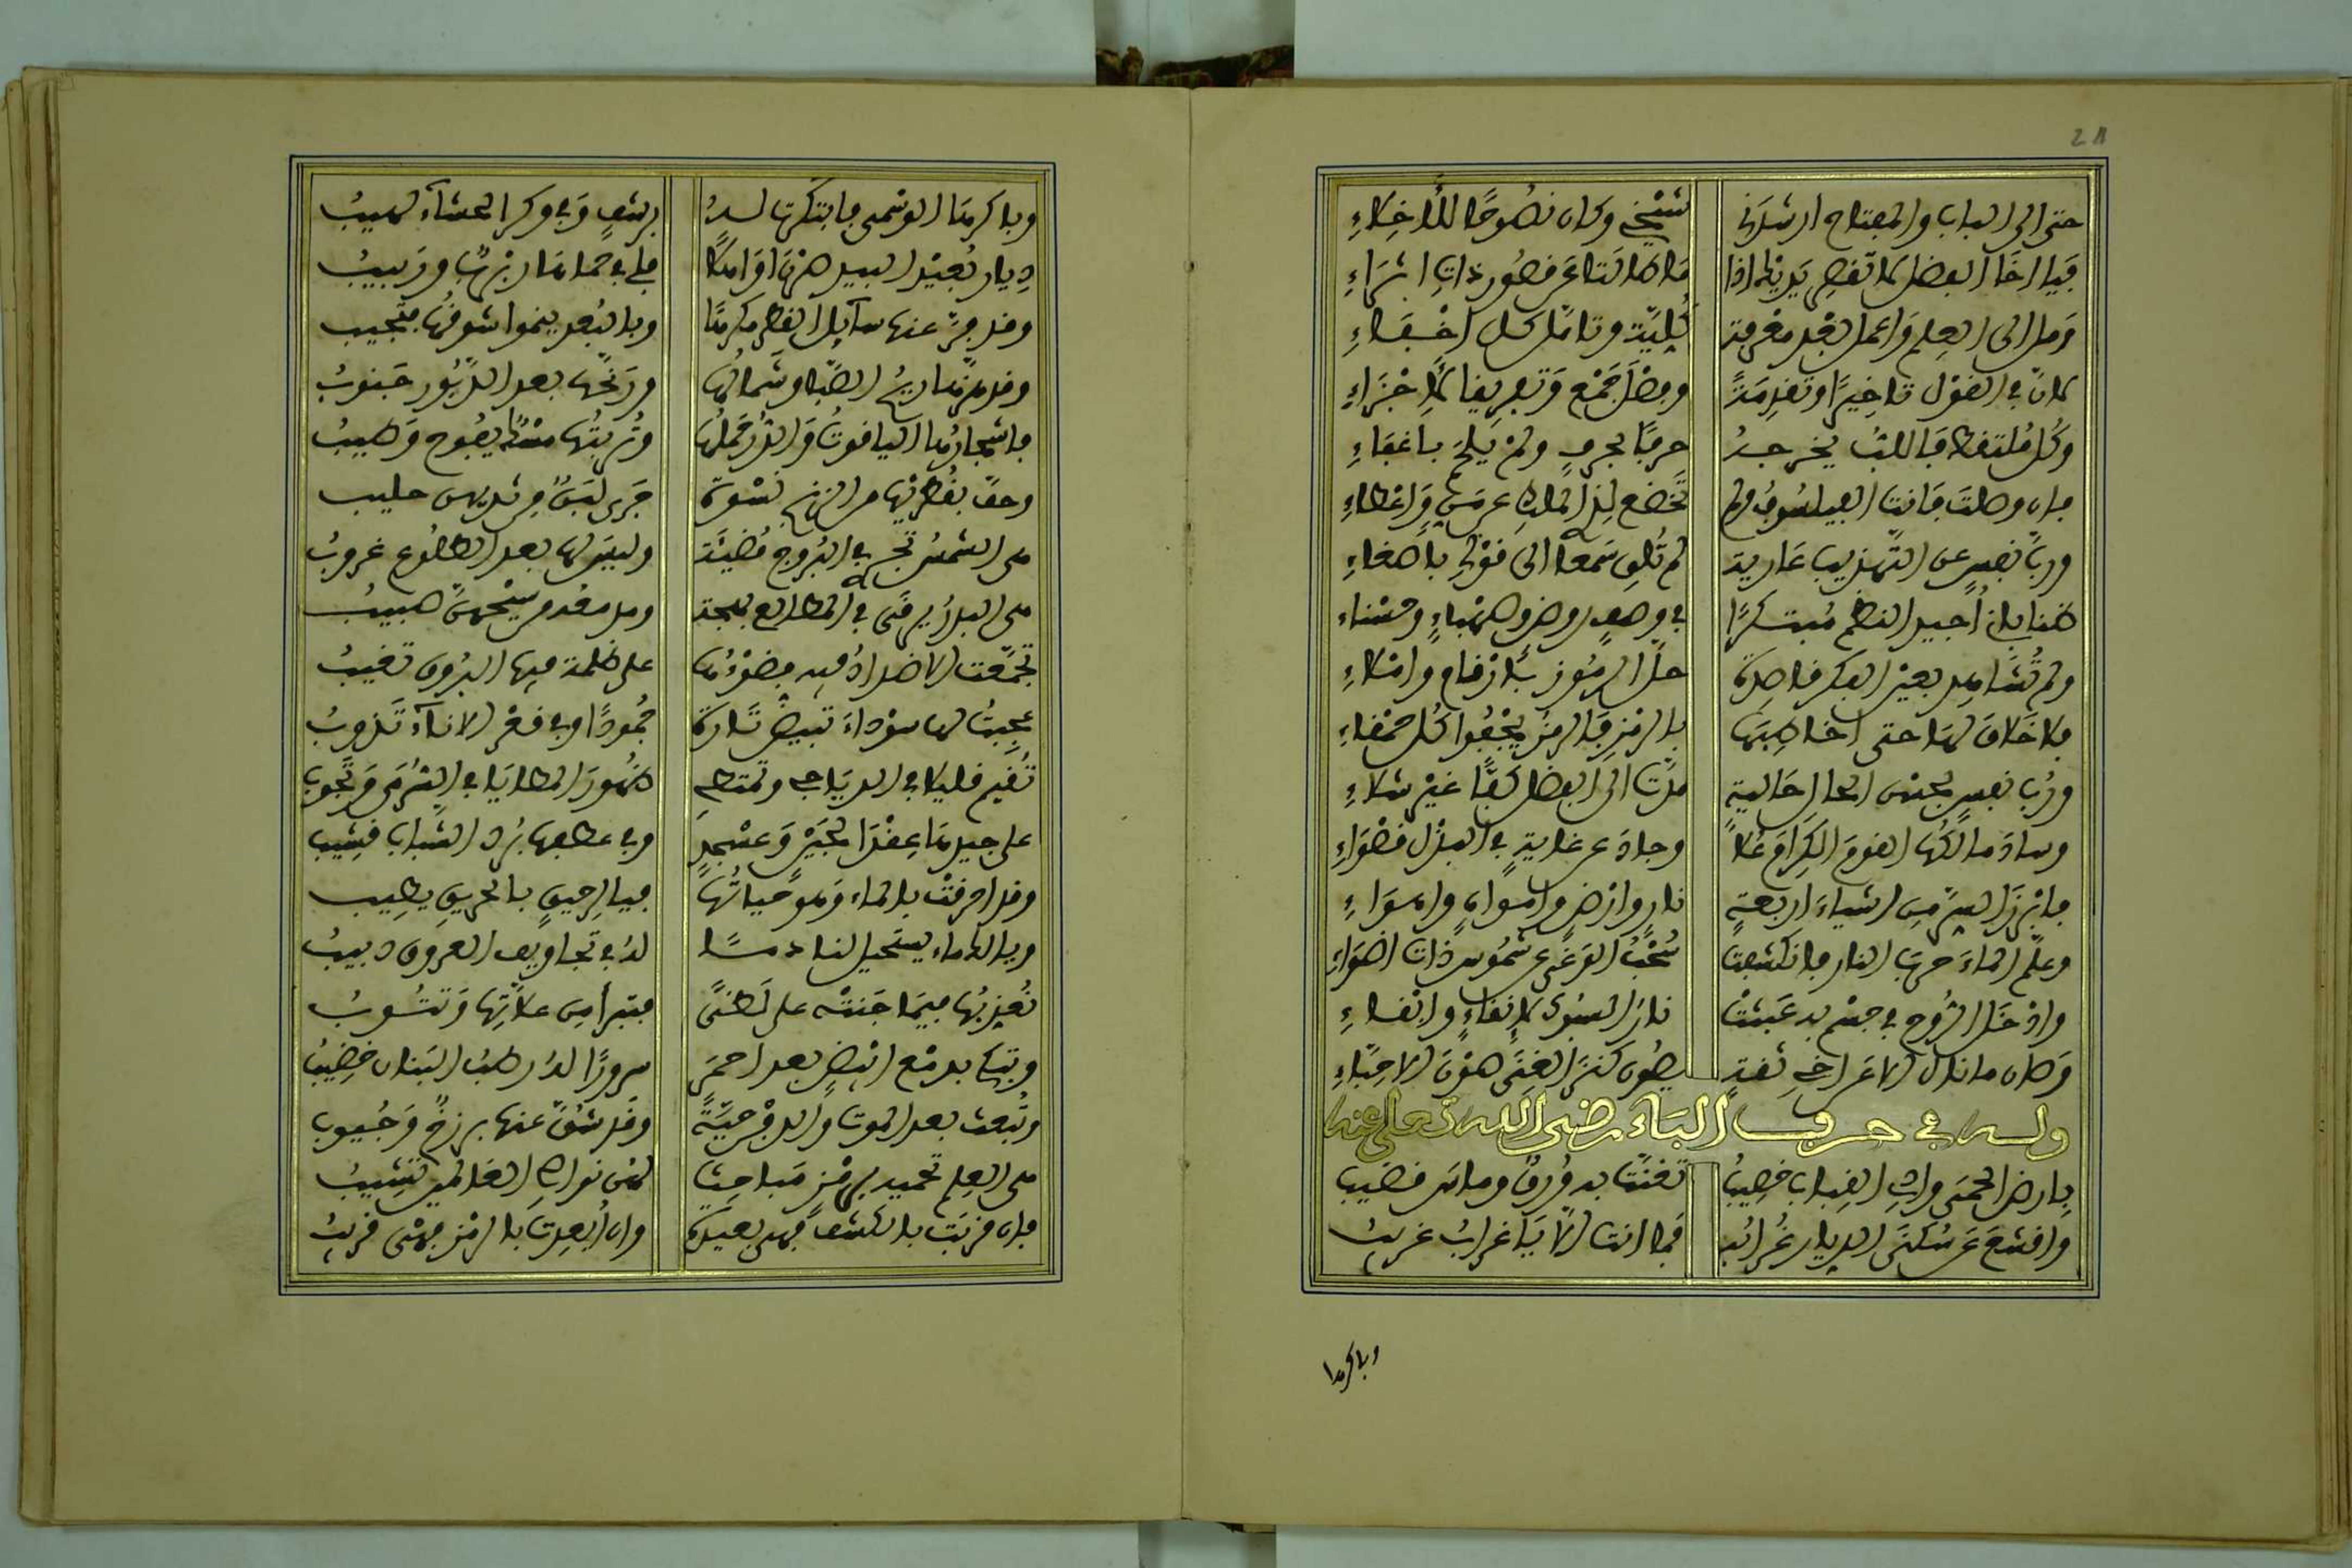 حتى الى الباب والمفتاح ارشدني شيخي وكان نصوحا للأخلاء
فيا اخا الفضل لا تقصر يديك اذا ما طالتا عن قصور ذات اثراء
ومل الى العلم واعمل بعد معرفة كلية وتامل كل اخفاء
لان في القول تاخيرا وتقدمة وفصل جمع وتفريقا لاجزاء
وكل ملتفظ فاللب يخرجه حرفا بحرف ولم يلج
فان وصلت فانت الفيلسوف ولم تخضع لذا الملك عن واعطاء
ورب نفس عن التهذيب عارية لم تلق سمعا الى قولي باصغاء
ظنا باني اجيد النظم مبتكرا في وصف روض وصهباء وحسناء
ولم تشاهد بعين الفكر قاصدة حل الرموز بارقام واملاء
فلا خلاق لها حتى اخاطبها بالرمز فالرمز يخفوا كل حمقاء
ورب نفس بحسن الحال حالية مدت الى الفضل كفا غير شلاء
وساد مالكها القوم الكرام علا وجاد عن غاية في البذل قصواء
فابرز السر من اشياء اربعة نار وارض وامواه واهواء
وعلم الماء حرب النار فانكشفت سحب الوغى عن شموس ذات اضواء
وادخل الروح في جسم به عبثت نار السبوك لانقاء وانقاء
وكان مانال الاعراضي ثقة يصون كنز الغنى صون الاحباء
وله في حرف الباء رضي الله تعلى عنه
بارض الحمى واد القباب خصيب تغنت به ورق وماس قضيب
واقشع عن سكنى الديار غرابه فما انت الا يا غراب غريب
وباكرها
وباكرها الوسمي فابتكرت له برشف وفي وكر الحشاء لهيب
ديار بعيد البيد صرنا اوانها فلي في حماها رنة ونحيب
وقد جر عنها سايل القطر مكرها وبالبعد ينموا شوقها فتجيب
وقد هزها ريح الصبا وشمالها ورنحها بعد الدبور جنوب
فاشجارها الياقوت والدر حملها وتربتها مسك يفوح وطيب
وحف بقطريها من الزنج نسوة جرى لبن من ثديهن حليب
هي الشمس تجري في البروج مضيئة وليس لها بعد الطلوع غروب
هي البدر يرقى في المطالع بهجة وهل مقدم من سيحهن هبيب
تجمعت الاضداد فيه فضوءها على ظلمة فيها البروق تغيب
عجبت لها سوداء تبيض تارة جمودا وفي قعر الاناء تذوب
تقيم قليلا في الدياجي وتمتطي ظهور المطايا في السرى وتجوب
على جيدها عقدا لجين وعسجد وفي عطفها برد الشباب قشيب
وقد احرقت بالماء وهو حياتها فيا لرحيق بالحريق يطيب
ويا الدماء يستحيل لنا دما له في تجاويف العروق دبيب
نعذبها فيما جنته على لظى فتبرأ من علاتها وتتوب
وتبكي بدمع ابيض بعد احمر سرورا له رطب البنان خضيب
وتبعث بعد الموت والدفن حية وقد شق عنها برزخ وجيوب
هي العلم تحميه برمز مباحث لهن نواصي العالمين تشيب
فان قربت بالكشف فهي بعيدة وان ابعدت بالرمز فهي قريب